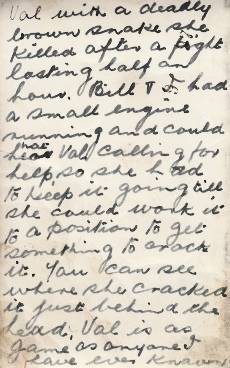 Val with a deadly
brown snake she
killed after a fight
lasting half an
hour. Bill & I had
a small engine
running and could
not hear Val calling for
help so she had
to keep it going till
she could work it
to a position to get
something to crack
it. You can see
where she cracked
it just behind the
head. Val is as
game as anyone I
have ever known